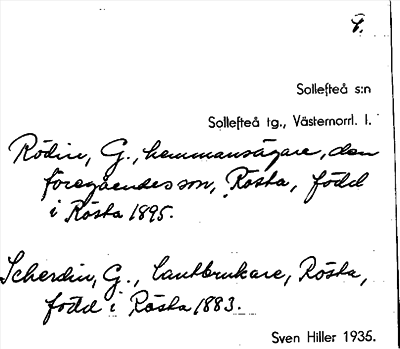 Sollefteå s:n
Sollefteå tg., Västernorrl. l.
Rödin, G., hemmansägare, den
föregåendes son, Rösta, född
i Rösta 1895.
Scherdin, G., lantbrukare, Rösta,
född i Rösta 1883.
Sven Hiller 1935.